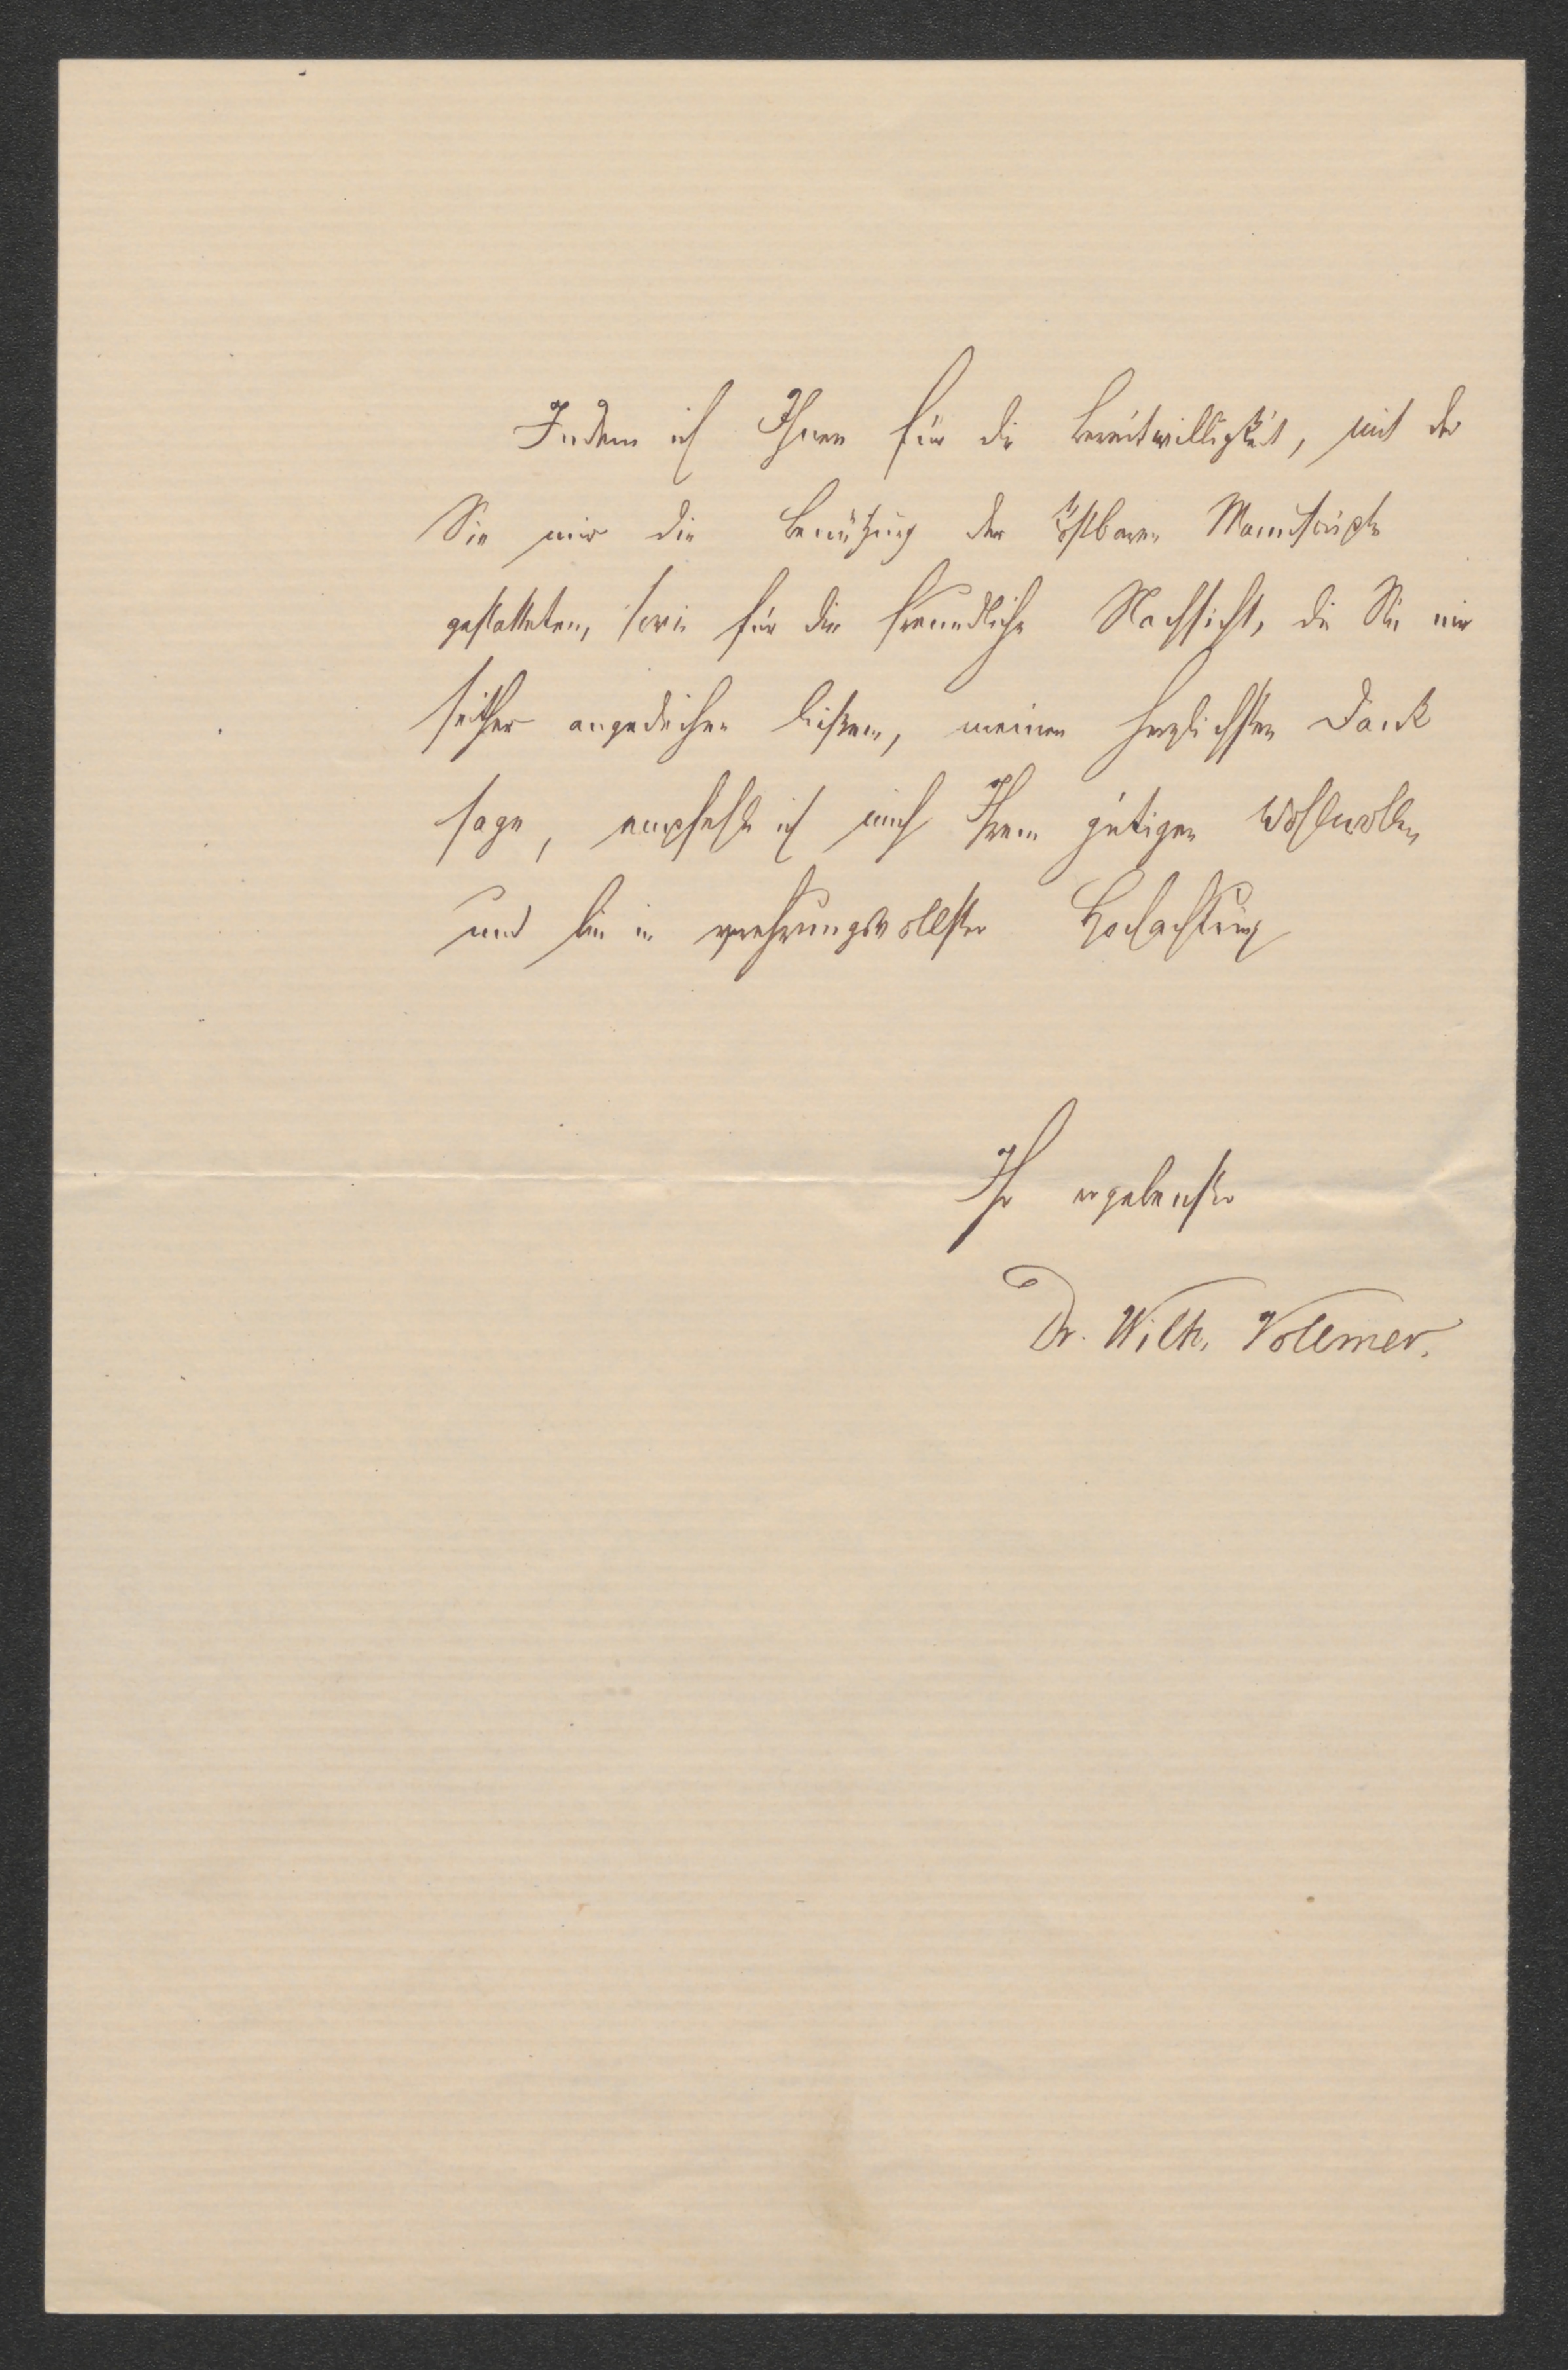 Indem ich Ihnen für die Bereitwilligkeit, mit der
Sie mir die Benützung der kostbaren Manuscripte
gestatteten, sowie für die freundliche Nachsicht, die Sie mir
seither angedeihen ließen, meinen herzlichsten Dank
sage, empfehle ich mich Ihrem gütigen Wohlwollen
und bin in verehrungsvollster Hochachtung
Ihr ergebenster
Dr. Wilh. Vollmer.